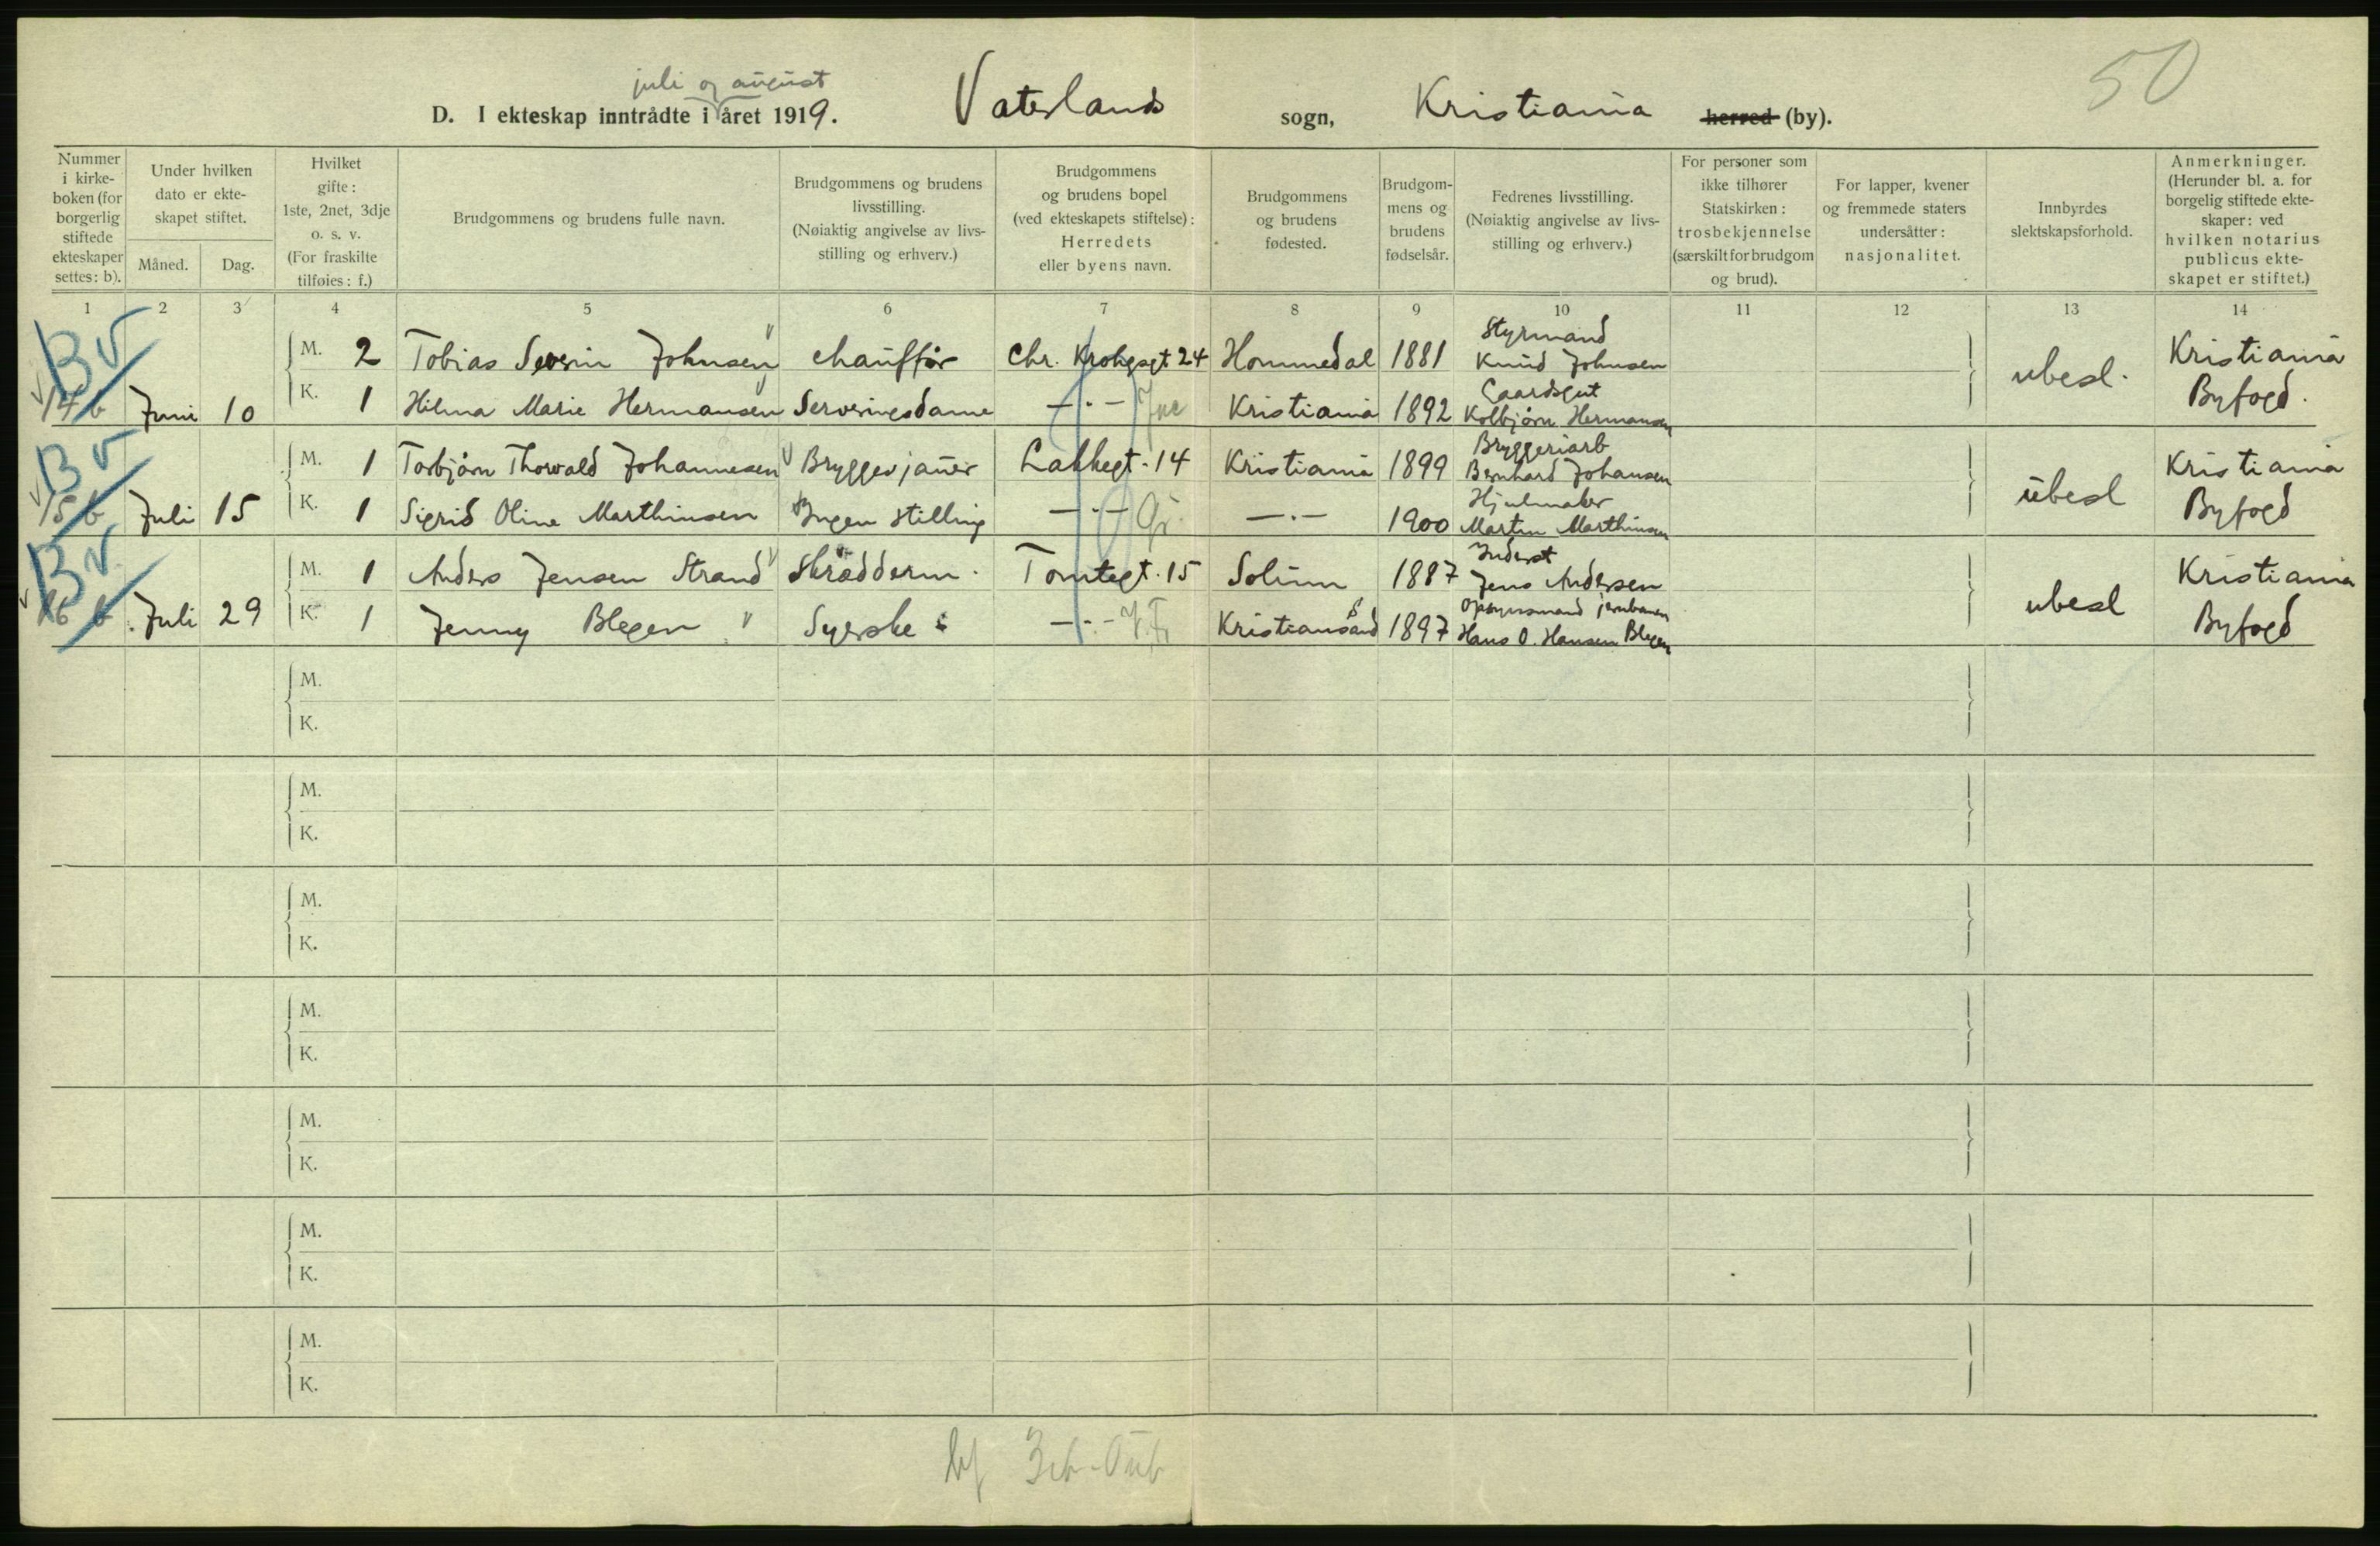 juli og august
50
D. I ekteskap inntrådte i året 1919. Vaterlands sogn, Kristiania herred (by).
Nummer i kirke-boken (for borgerlig stiftede ekteskaper settes: b).
Under hvilken dato er ekte-skapet stiftet.
Måned. Dag.
Hvilket gifte: 1ste, 2net, 3dje o. s. v. (For fraskilte tilføies: f.)
Brudgommens og brudens fulle navn.
Brudgommens og brudens livsstilling. (Nøiaktig angivelse av livs-stilling og erhverv.)
Brudgommens og brudens bopel (ved ekteskapets stiftelse): Herredets eller byens navn.
Brudgommens og brudens fødested.
Brudgom-mens og brudens fødselsår.
Fedrenes livsstilling. (Nøiaktig angivelse av livs-stilling og erhverv.)
For personer som ikke tilhører Statskirken: trosbekjennelse (særskilt for brudgom og brud).
For lapper, kvener og fremmede staters undersåtter: nasjonalitet.
Innbyrdes slektskapsforhold.
Anmerkninger. (Herunder bl. a. for borgelig stiftede ekte-skaper: ved hvilken notarius publicus ekte-skapet er stiftet.)
1 2 3 4 5 6 7 8 9 10 11 12 13 14
Bv
M. 2 Tobias Severin Johnsen chauffør Chr. Krohgsgt 24 Hommedal 1881 Styrmand Knud Johnsen ubesl. Kristiania Byfogd.
14 b Juni 10 K. 1 Hilma Marie Hermansen Serveringsdame —·— Kristiania 1892 Gaardsgut Kolbjørn Hermansen
Bv
M. 1 Torbjørn Thorvald Johannesen Bryggerjauer Lakkegt. 14 Kristiania 1899 Bryggeriarb Bernhard Johansen ubesl Kristiania Byfogd
15 b Juli 15 K. 1 Sigrid Oline Marthinsen Ingen stilling —·— Gr. —·— 1900 Hjulmaker Martin Marthinsen
Bv
M. 1 Anders Jensen Strand Skrædderm. Tomtegt. 15 Solum 1887 Inderst Jens Andersen ubesl Kristiania Byfogd
16 b Juli 29 K. 1 Jenny Blegen Syerske —·— Kristiansand S 1897 Opsynsmand jernbanen Hans O. Hansen Blegen
M.
K.
M.
K.
M.
K.
M.
K.
M.
K.
M.
K.
M.
K.